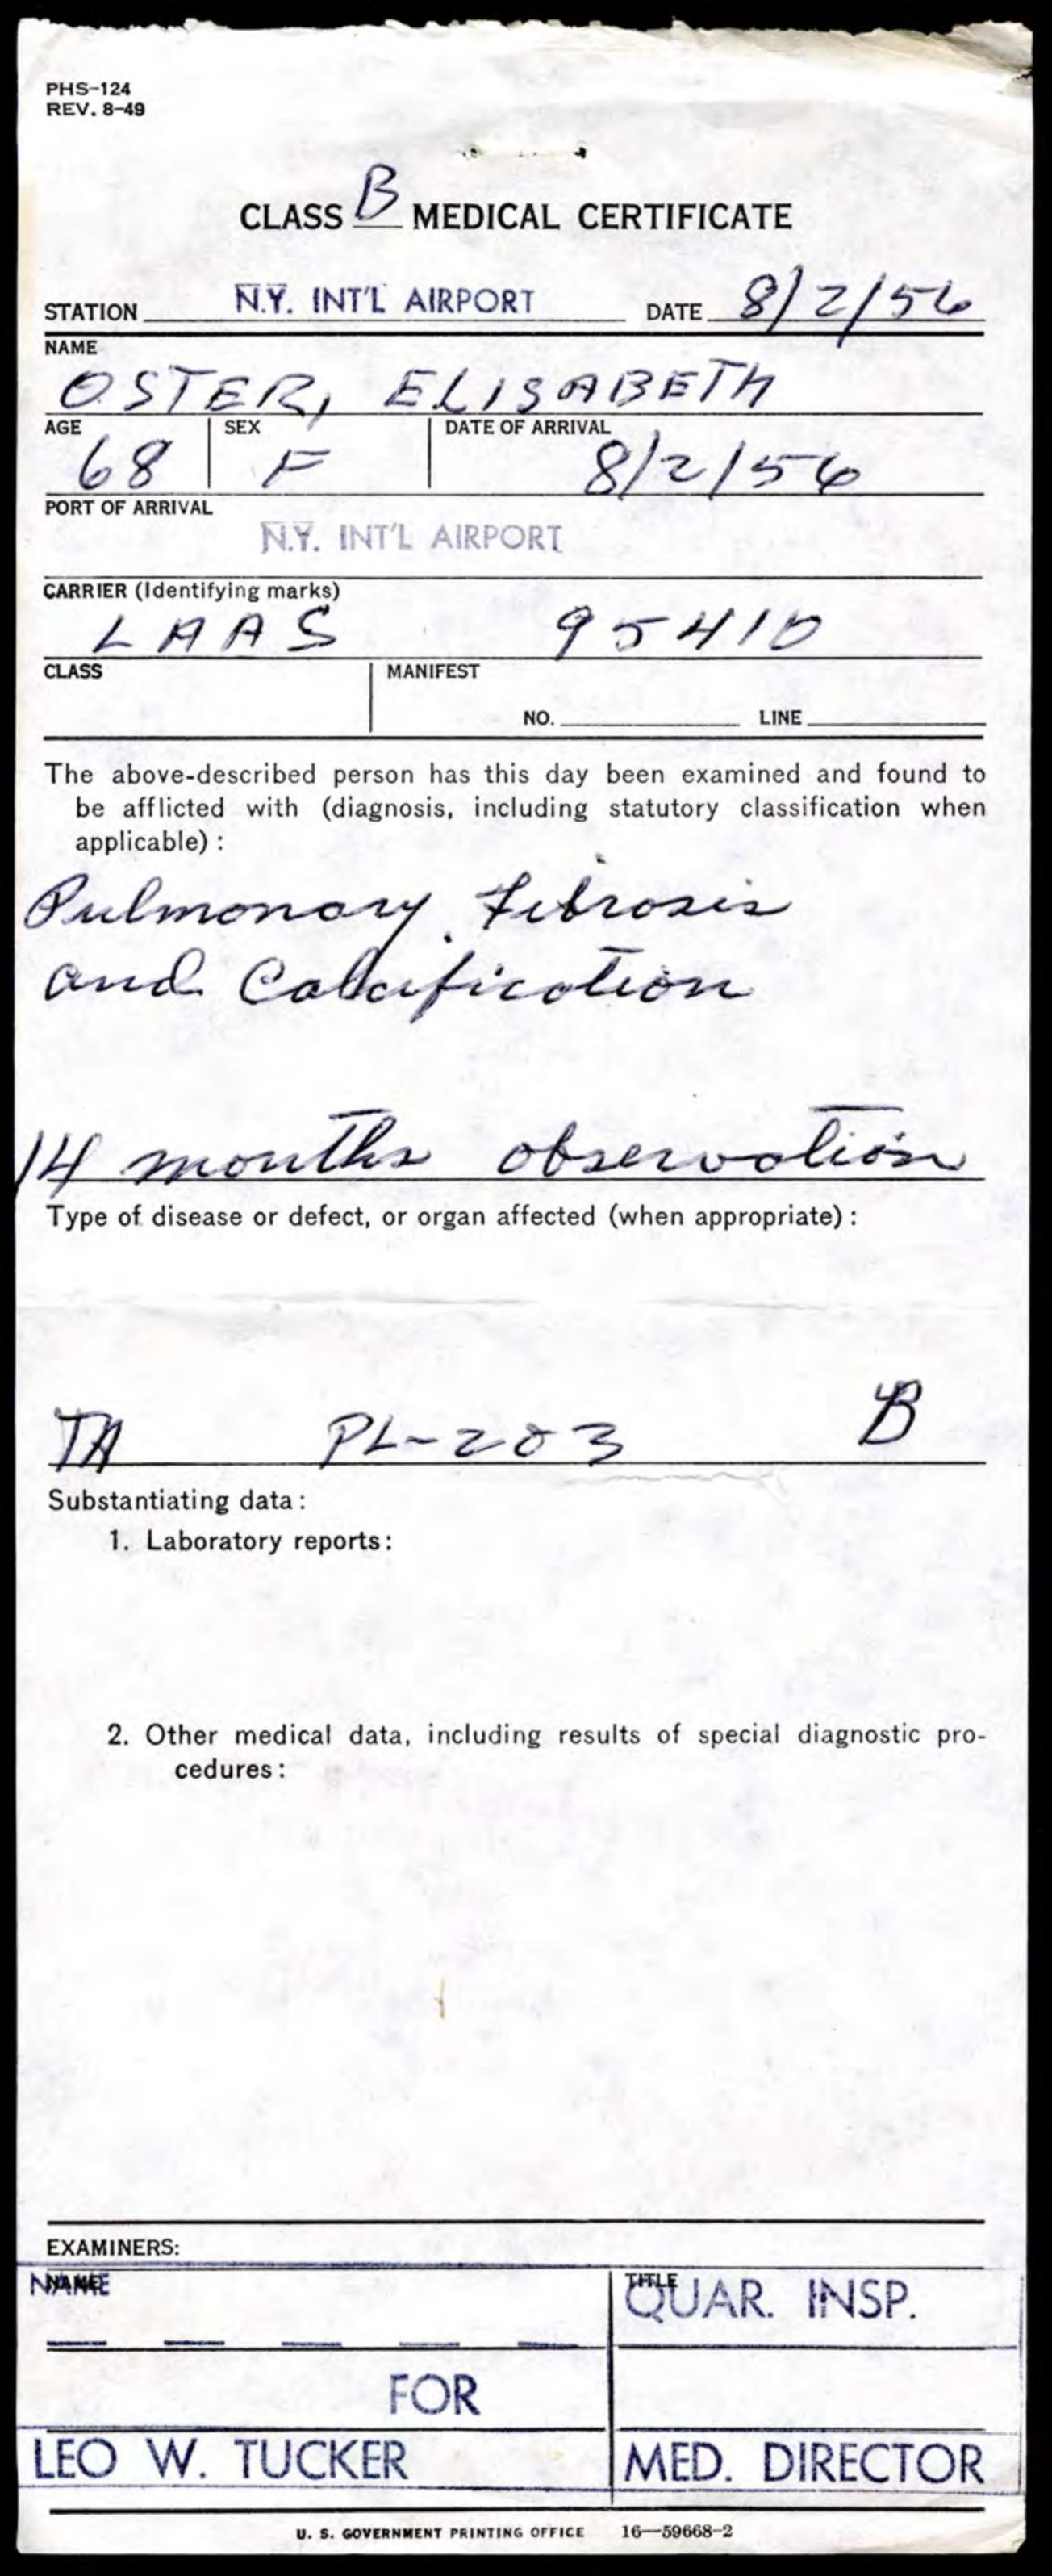 PHS-124
REV. 8-49
CLASS B MEDICAL CERTIFICATE
STATION N.Y. INT'L AIRPORT DATE 8/2/56
NAME
OSTER, ELISABETH
AGE SEX DATE OF ARRIVAL
68 F 8/2/56
PORT OF ARRIVAL
N.Y. INT'L AIRPORT
CARRIER (Identifying marks)
LAAS 95410
CLASS MANIFEST
NO. LINE
The above-described person has this day been examined and found to
be afflicted with (diagnosis, including statutory classification when
applicable) :
Pulmonary Fibrosis
and Calcification
14 months observation
Type of disease or defect, or organ affected (when appropriate) :
TA PL-203 B
Substantiating data :
1. Laboratory reports :
2. Other medical data, including results of special diagnostic pro-
cedures :
EXAMINERS:
NAME TITLE
QUAR. INSP.
FOR
LEO W. TUCKER MED. DIRECTOR
U. S. GOVERNMENT PRINTING OFFICE 16—59668-2